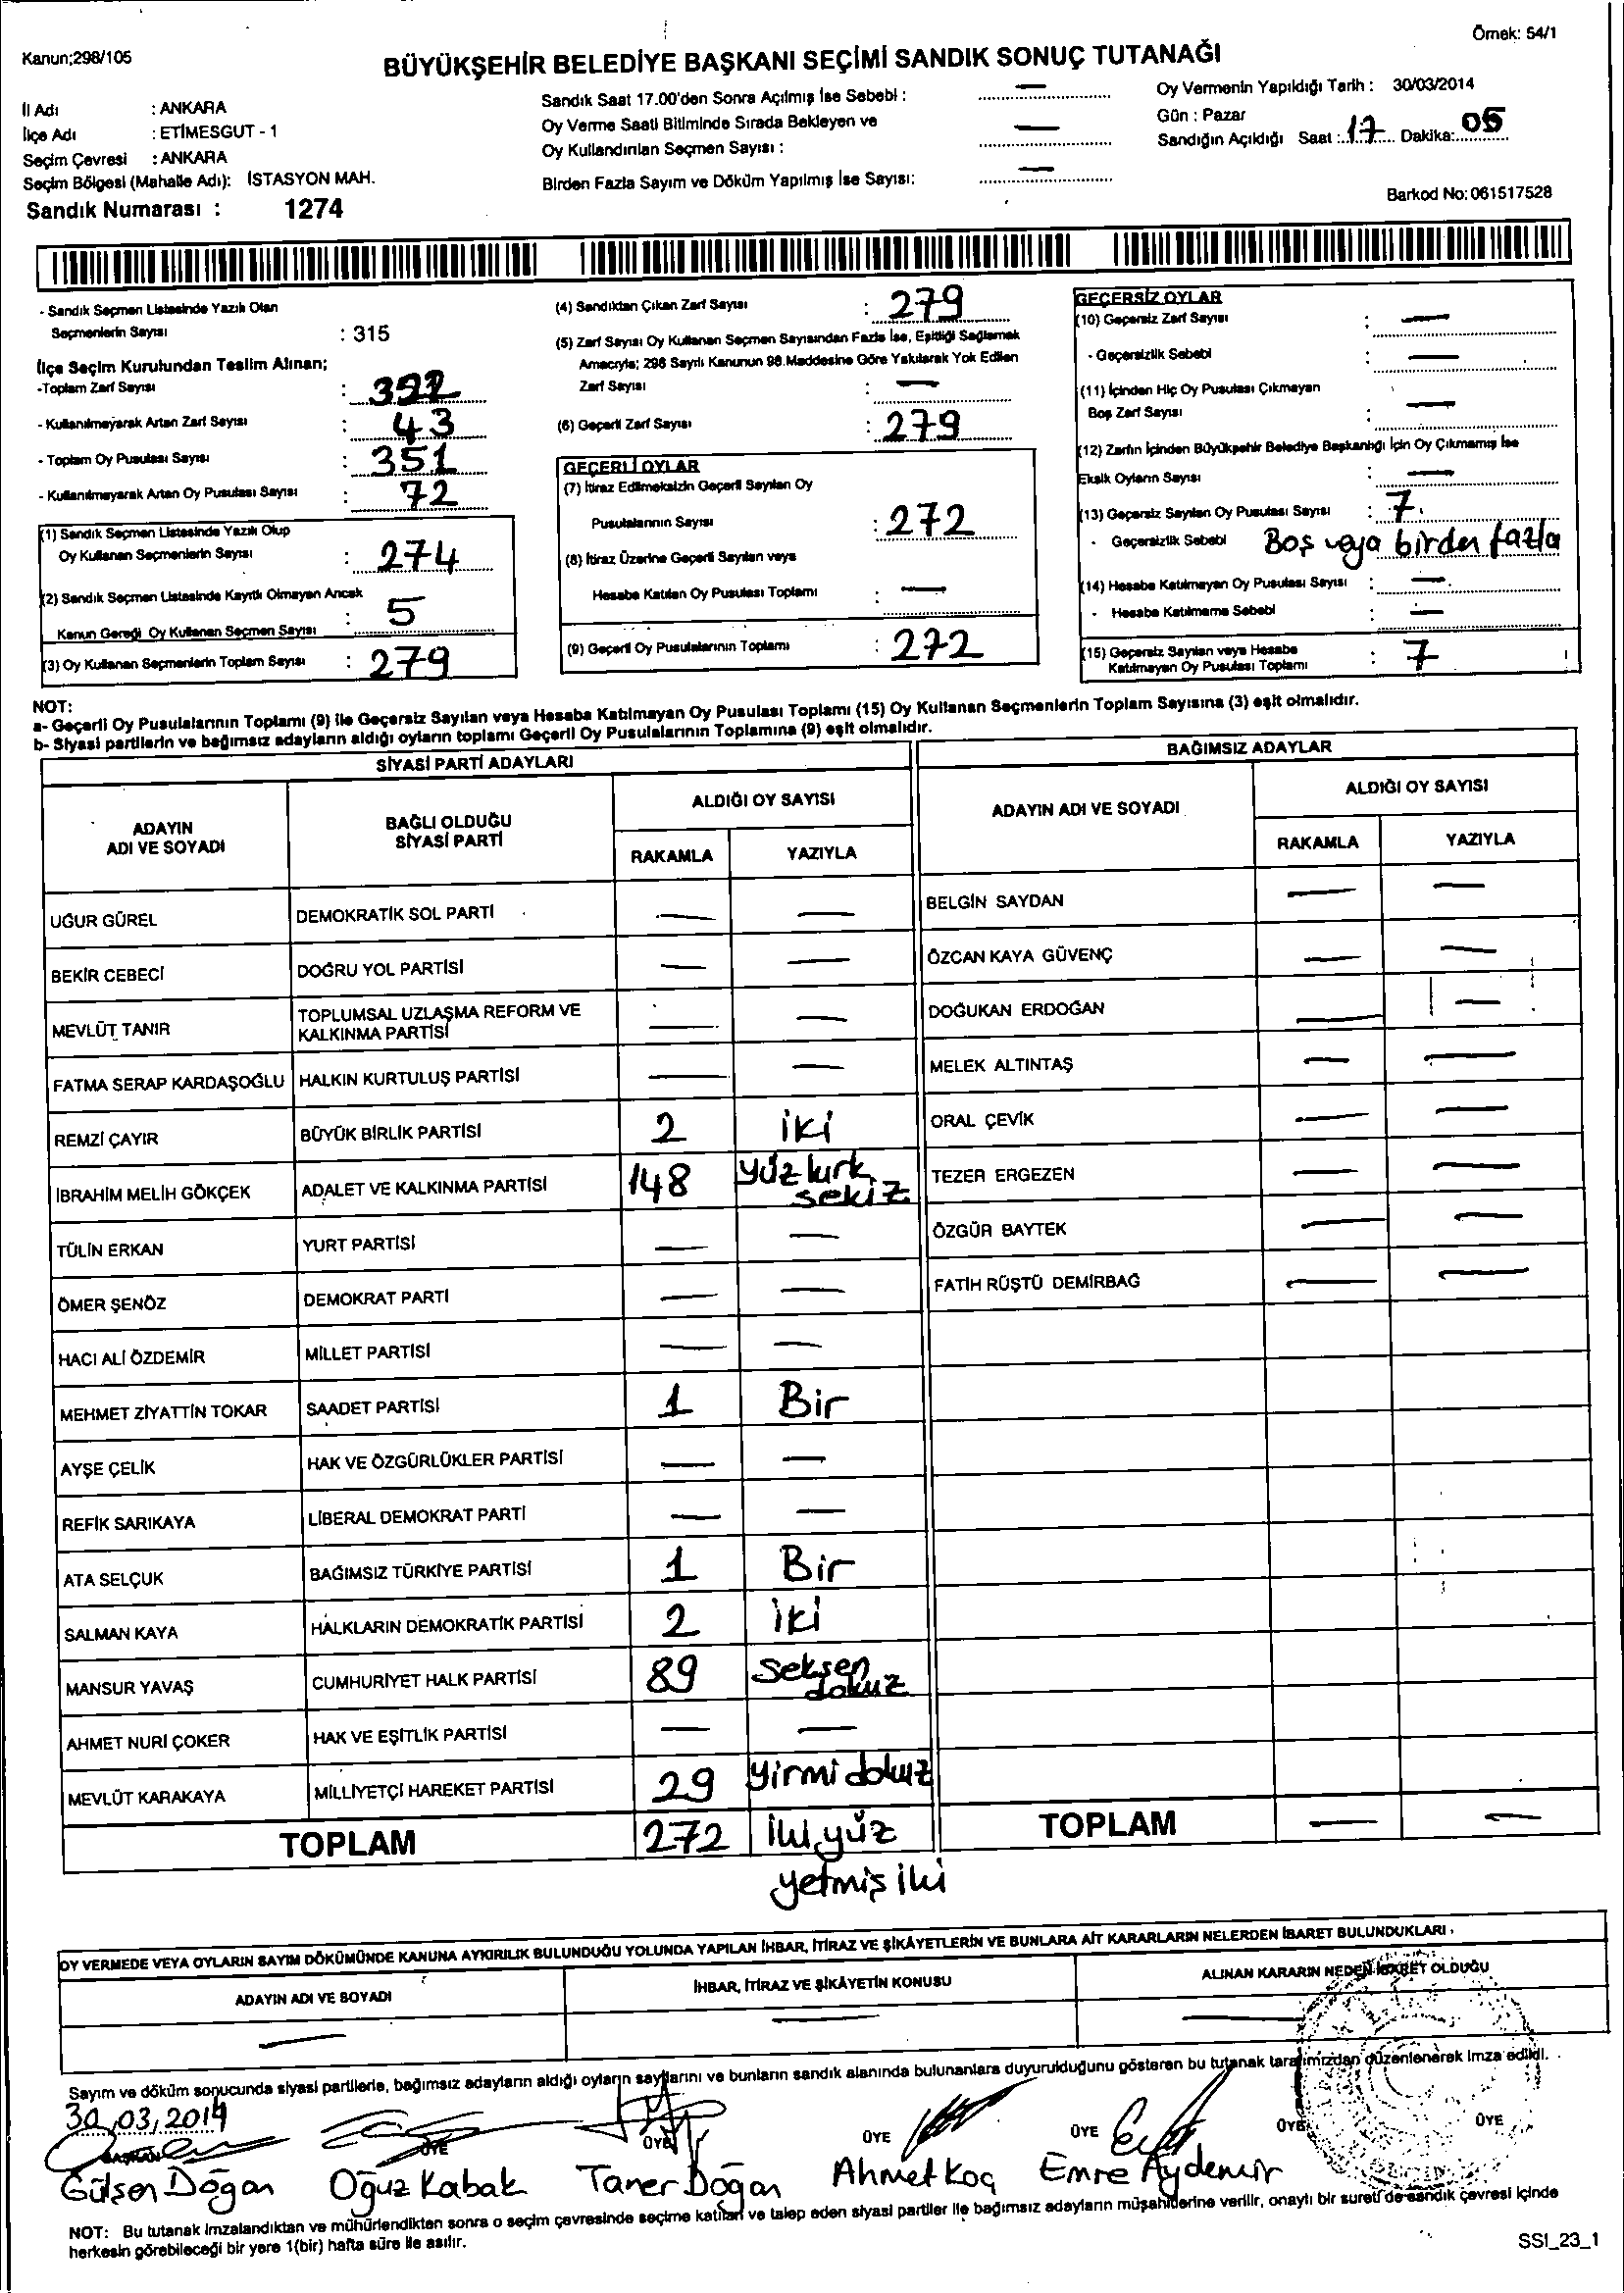 Kanun;298/105
Örnek: 54/1
BÜYÜKŞEHİR BELEDİYE BAŞKANI SEÇİMİ SANDIK SONUÇ TUTANAĞI
İl Adı : ANKARA
İlçe Adı : ETİMESGUT - 1
Seçim Çevresi : ANKARA
Seçim Bölgesi (Mahalle Adı): İSTASYON MAH.
Sandık Numarası : 1274
Sandık Saat 17.00'den Sonra Açılmış İse Sebebi : —
Oy Verme Saati Bitiminde Sırada Bekleyen ve
Oy Kullandırılan Seçmen Sayısı : —
Birden Fazla Sayım ve Döküm Yapılmış İse Sayısı: —
Oy Vermenin Yapıldığı Tarih : 30/03/2014
Gün : Pazar
Sandığın Açıldığı Saat : 17 Dakika: 05
Barkod No: 061517528
- Sandık Seçmen Listesinde Yazılı Olan
Seçmenlerin Sayısı : 315
İlçe Seçim Kurulundan Teslim Alınan;
-Toplam Zarf Sayısı : 322
- Kullanılmayarak Artan Zarf Sayısı : 43
- Toplam Oy Pusulası Sayısı : 351
- Kullanılmayarak Artan Oy Pusulası Sayısı : 72
(1) Sandık Seçmen Listesinde Yazılı Olup
Oy Kullanan Seçmenlerin Sayısı : 274
(2) Sandık Seçmen Listesinde Kayıtlı Olmayan Ancak
Kanun Gereği Oy Kullanan Seçmen Sayısı : 5
(3) Oy Kullanan Seçmenlerin Toplam Sayısı : 279
(4) Sandıktan Çıkan Zarf Sayısı : 279
(5) Zarf Sayısı Oy Kullanan Seçmen Sayısından Fazla İse, Eşitliği Sağlamak
Amacıyla; 298 Sayılı Kanunun 98.Maddesine Göre Yakılarak Yok Edilen
Zarf Sayısı : —
(6) Geçerli Zarf Sayısı : 279
GEÇERLİ OYLAR
(7) İtiraz Edilmeksizin Geçerli Sayılan Oy
Pusulalarının Sayısı : 272
(8) İtiraz Üzerine Geçerli Sayılan veya
Hesaba Katılan Oy Pusulası Toplamı : —
(9) Geçerli Oy Pusulalarının Toplamı : 272
GEÇERSİZ OYLAR
(10) Geçersiz Zarf Sayısı : —
- Geçersizlik Sebebi : —
(11) İçinden Hiç Oy Pusulası Çıkmayan
Boş Zarf Sayısı : —
(12) Zarfın İçinden Büyükşehir Belediye Başkanlığı İçin Oy Çıkmamış İse
Eksik Oyların Sayısı : —
(13) Geçersiz Sayılan Oy Pusulası Sayısı : 7
- Geçersizlik Sebebi Boş veya birden fazla
(14) Hesaba Katılmayan Oy Pusulası Sayısı : —
- Hesaba Katılmama Sebebi : —
(15) Geçersiz Sayılan veya Hesaba
Katılmayan Oy Pusulası Toplamı : 7
NOT:
a- Geçerli Oy Pusulalarının Toplamı (9) ile Geçersiz Sayılan veya Hesaba Katılmayan Oy Pusulası Toplamı (15) Oy Kullanan Seçmenlerin Toplam Sayısına (3) eşit olmalıdır.
b- Siyasi partilerin ve bağımsız adayların aldığı oyların toplamı Geçerli Oy Pusulalarının Toplamına (9) eşit olmalıdır.
SİYASİ PARTİ ADAYLARI
ADAYIN
ADI VE SOYADI
BAĞLI OLDUĞU
SİYASİ PARTİ
ALDIĞI OY SAYISI
RAKAMLA YAZIYLA
UĞUR GÜREL DEMOKRATİK SOL PARTİ — —
BEKİR CEBECİ DOĞRU YOL PARTİSİ — —
MEVLÜT TANIR TOPLUMSAL UZLAŞMA REFORM VE
KALKINMA PARTİSİ — —
FATMA SERAP KARDAŞOĞLU HALKIN KURTULUŞ PARTİSİ — —
REMZİ ÇAYIR BÜYÜK BİRLİK PARTİSİ 2 iki
İBRAHİM MELİH GÖKÇEK ADALET VE KALKINMA PARTİSİ 148 yüz kırk
sekiz
TÜLİN ERKAN YURT PARTİSİ — —
ÖMER ŞENÖZ DEMOKRAT PARTİ — —
HACI ALİ ÖZDEMİR MİLLET PARTİSİ — —
MEHMET ZİYATTİN TOKAR SAADET PARTİSİ 1 Bir
AYŞE ÇELİK HAK VE ÖZGÜRLÜKLER PARTİSİ — —
REFİK SARIKAYA LİBERAL DEMOKRAT PARTİ — —
ATA SELÇUK BAĞIMSIZ TÜRKİYE PARTİSİ 1 Bir
SALMAN KAYA HALKLARIN DEMOKRATİK PARTİSİ 2 iki
MANSUR YAVAŞ CUMHURİYET HALK PARTİSİ 89 seksen
dokuz
AHMET NURİ ÇOKER HAK VE EŞİTLİK PARTİSİ — —
MEVLÜT KARAKAYA MİLLİYETÇİ HAREKET PARTİSİ 29 yirmi dokuz
TOPLAM 272 iki yüz
yetmiş iki
BAĞIMSIZ ADAYLAR
ADAYIN ADI VE SOYADI
ALDIĞI OY SAYISI
RAKAMLA YAZIYLA
BELGİN SAYDAN — —
ÖZCAN KAYA GÜVENÇ — —
DOĞUKAN ERDOĞAN — —
MELEK ALTINTAŞ — —
ORAL ÇEVİK — —
TEZER ERGEZEN — —
ÖZGÜR BAYTEK — —
FATİH RÜŞTÜ DEMİRBAĞ — —
TOPLAM — —
OY VERMEDE VEYA OYLARIN SAYIM DÖKÜMÜNDE KANUNA AYKIRILIK BULUNDUĞU YOLUNDA YAPILAN İHBAR, İTİRAZ VE ŞİKÂYETLERİN VE BUNLARA AİT KARARLARIN NELERDEN İBARET BULUNDUKLARI .
ADAYIN ADI VE SOYADI
İHBAR, İTİRAZ VE ŞİKÂYETİN KONUSU
ALINAN KARARIN NEDEN İBARET OLDUĞU
— — —
Sayım ve döküm sonucunda siyasi partilerle, bağımsız adayların aldığı oyların sayılarını ve bunların sandık alanında bulunanlara duyurulduğunu gösteren bu tutanak tarafımızdan düzenlenerek imza edildi.
30.03.2014
BAŞKAN ÜYE ÜYE ÜYE ÜYE ÜYE ÜYE
Gülsen Doğan Oğuz Kabak Taner Doğan Ahmet Koç Emre Aydemir
NOT: Bu tutanak imzalandıktan ve mühürlendikten sonra o seçim çevresinde seçime katılan ve talep eden siyasi partiler ile bağımsız adayların müşahitlerine verilir, onaylı bir sureti de sandık çevresi içinde
herkesin görebileceği bir yere 1(bir) hafta süre ile asılır.
SSI_23_1